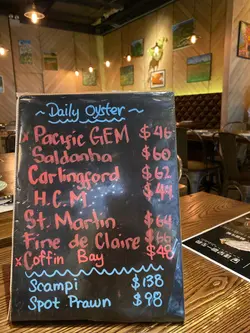 ~ Daily Oyster ~
x Pacific GEM $46
Saldanha $60
Carlingford $62
H.C.M. $44
St. Martin $64
Fine de Claire $66
x Coffin Bay $48
Scampi $138
Spot Prawn $98